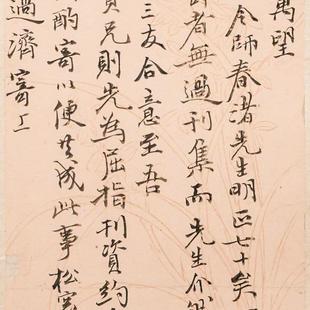 萬望
令師春渚先生明正七十矣
者無過刊集而先生介
三友合意至吾
兄則先為屈指刊資約
酌寄以便共成此事松
過濟寗上